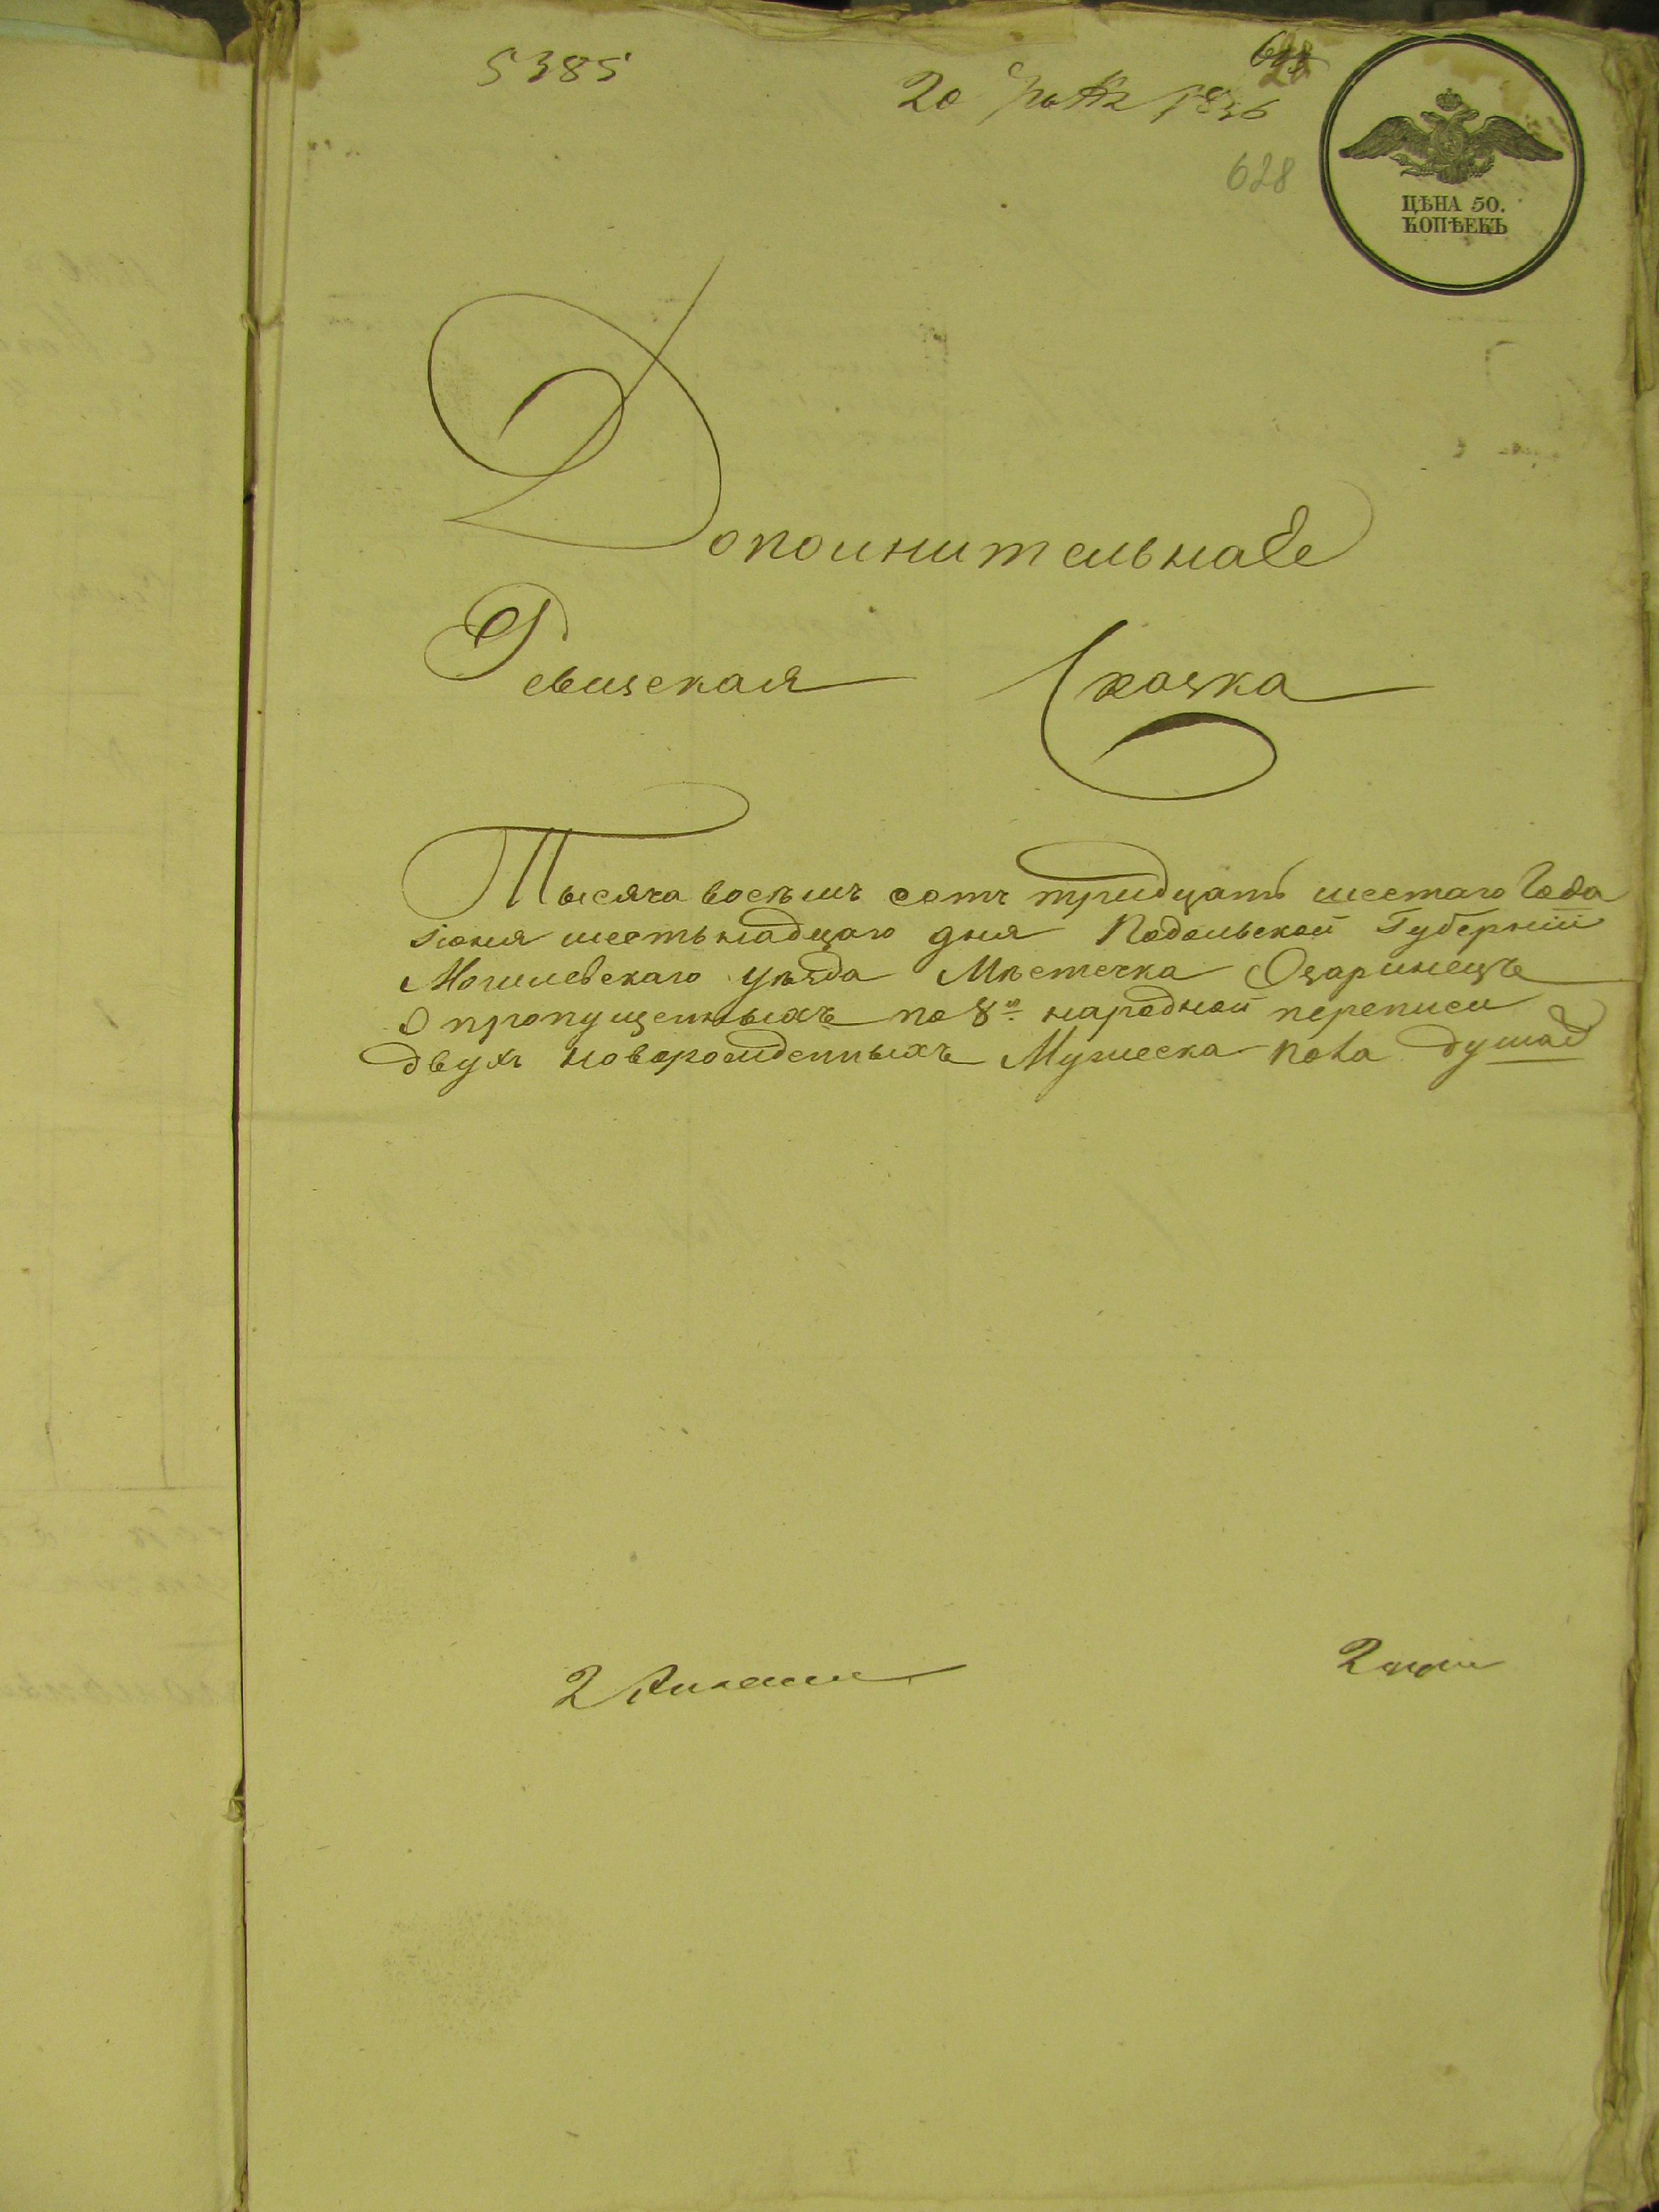 5385
20 1836
628
ЦѢНА 50.
КОПѢЕКЪ
Дополнительная
Ревизская Сказка
Тысяча восѣмъ сотъ тридцать шестаго Года
Іюня шестьнадцаго дня Подольской Губерніи
Могилевскаго уѣзда Мѣстечка Озаринецъ
О пропущенныхъ по 8й народной переписи
двухъ новорожденныхъ Мужеска пола душъ
2
2